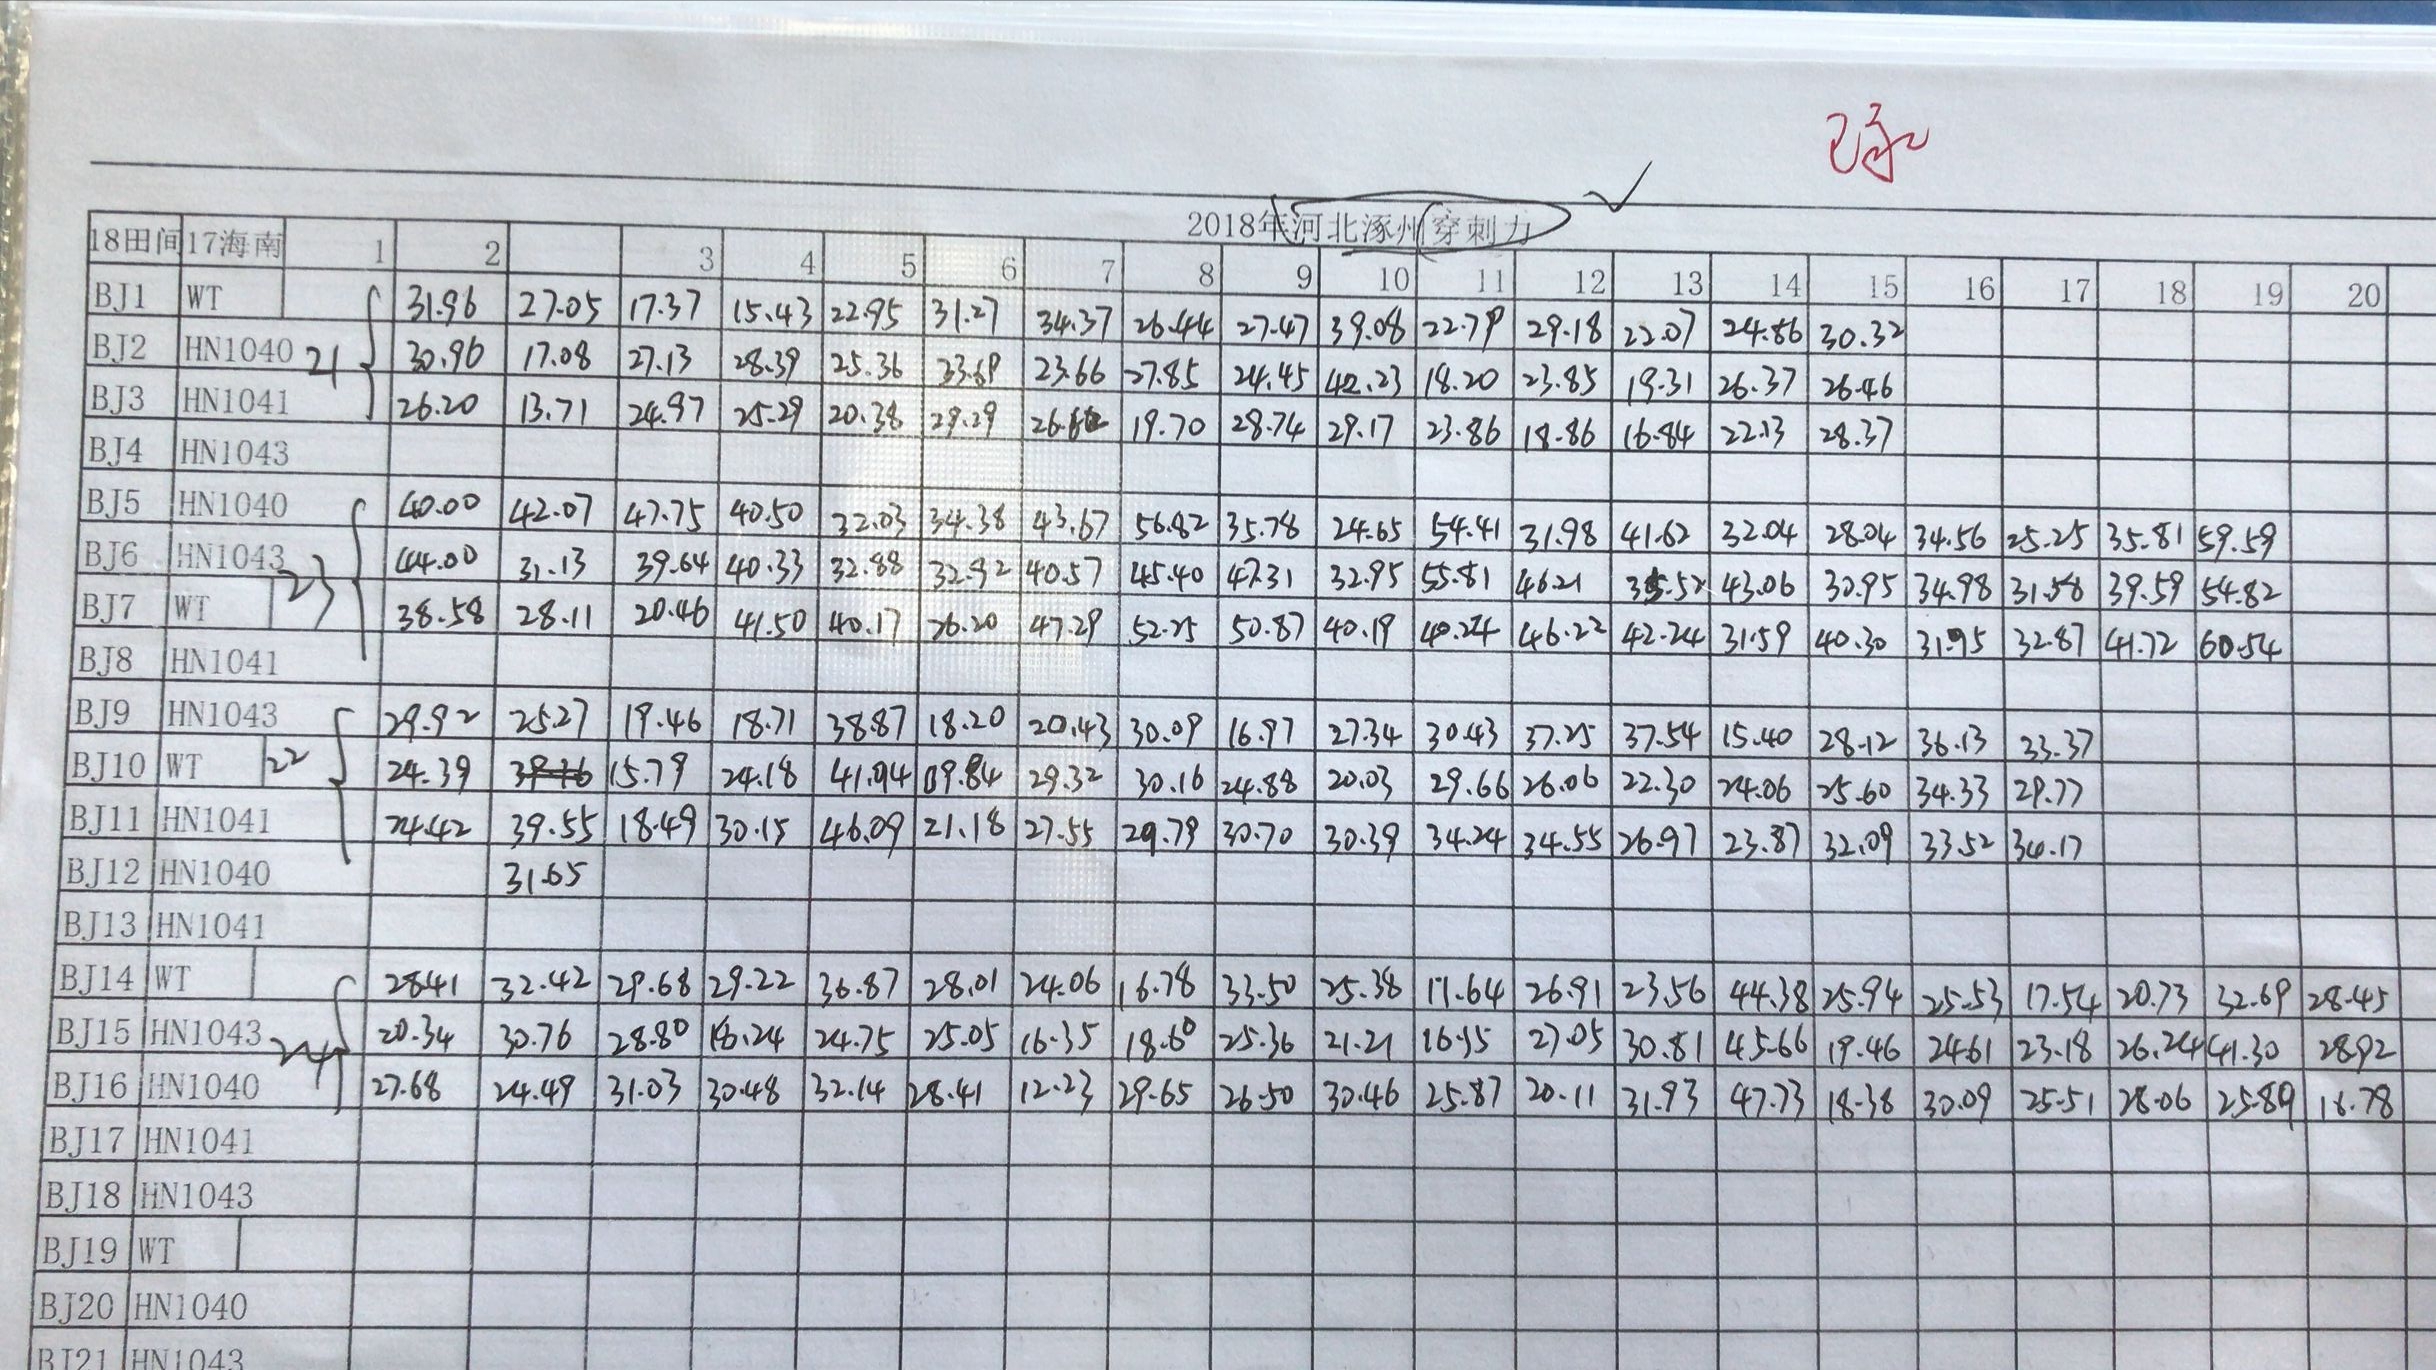 已录
2018年河北涿州穿刺力 ✓
18田间 17海南 1 2 3 4 5 6 7 8 9 10 11 12 13 14 15 16 17 18 19 20
BJ1 WT 31.96 27.05 17.37 15.43 22.95 31.27 34.37 26.44 27.47 39.08 22.79 29.18 22.07 24.86 30.32
BJ2 HN1040 21 30.96 17.08 27.13 28.39 25.36 33.69 23.66 27.85 24.45 42.23 18.20 23.85 19.31 26.37 26.46
BJ3 HN1041 26.20 13.71 24.97 25.29 20.38 29.29 19.70 28.74 29.17 23.86 18.86 16.84 22.13 28.37
BJ4 HN1043
BJ5 HN1040 40.00 42.07 47.75 40.50 32.03 34.38 43.67 56.82 35.78 24.65 54.41 31.98 41.62 32.04 28.04 34.56 25.25 35.81 59.59
BJ6 HN1043 23 44.00 31.13 39.64 40.33 32.88 32.92 40.57 45.40 47.31 32.95 55.81 46.21 35.52 43.06 30.95 34.98 31.58 39.59 54.82
BJ7 WT 38.58 28.11 20.46 41.50 40.17 26.20 47.29 52.25 50.87 40.19 40.24 46.22 42.24 31.59 40.30 31.95 32.87 41.72 60.54
BJ8 HN1041
BJ9 HN1043 29.92 25.27 19.46 18.71 38.87 18.20 20.43 30.09 16.97 27.34 30.43 37.25 37.54 15.40 28.12 36.13 33.37
BJ10 WT 22 24.39 15.79 24.18 41.94 19.84 29.32 30.16 24.88 20.03 29.66 26.06 22.30 24.06 25.60 34.33 29.77
BJ11 HN1041 24.42 39.55 18.49 30.15 46.09 21.18 27.55 29.79 30.70 30.39 34.24 34.55 26.97 23.87 32.09 33.52 34.17
BJ12 HN1040 31.65
BJ13 HN1041
BJ14 WT 28.41 32.42 29.68 29.22 36.87 28.01 24.06 16.78 33.50 25.38 17.64 26.91 23.56 44.38 25.94 25.53 17.54 20.73 32.69 28.45
BJ15 HN1043 24 20.34 30.76 28.80 18.24 24.75 25.05 16.35 18.60 25.36 21.21 16.35 27.05 30.81 45.66 19.46 24.61 23.18 26.24 41.30 28.92
BJ16 HN1040 27.68 24.49 31.03 30.48 32.14 28.41 12.23 29.65 26.50 30.46 25.87 20.11 31.93 47.73 18.38 30.09 25.51 28.06 25.89 18.78
BJ17 HN1041
BJ18 HN1043
BJ19 WT
BJ20 HN1040
BJ21 HN1043